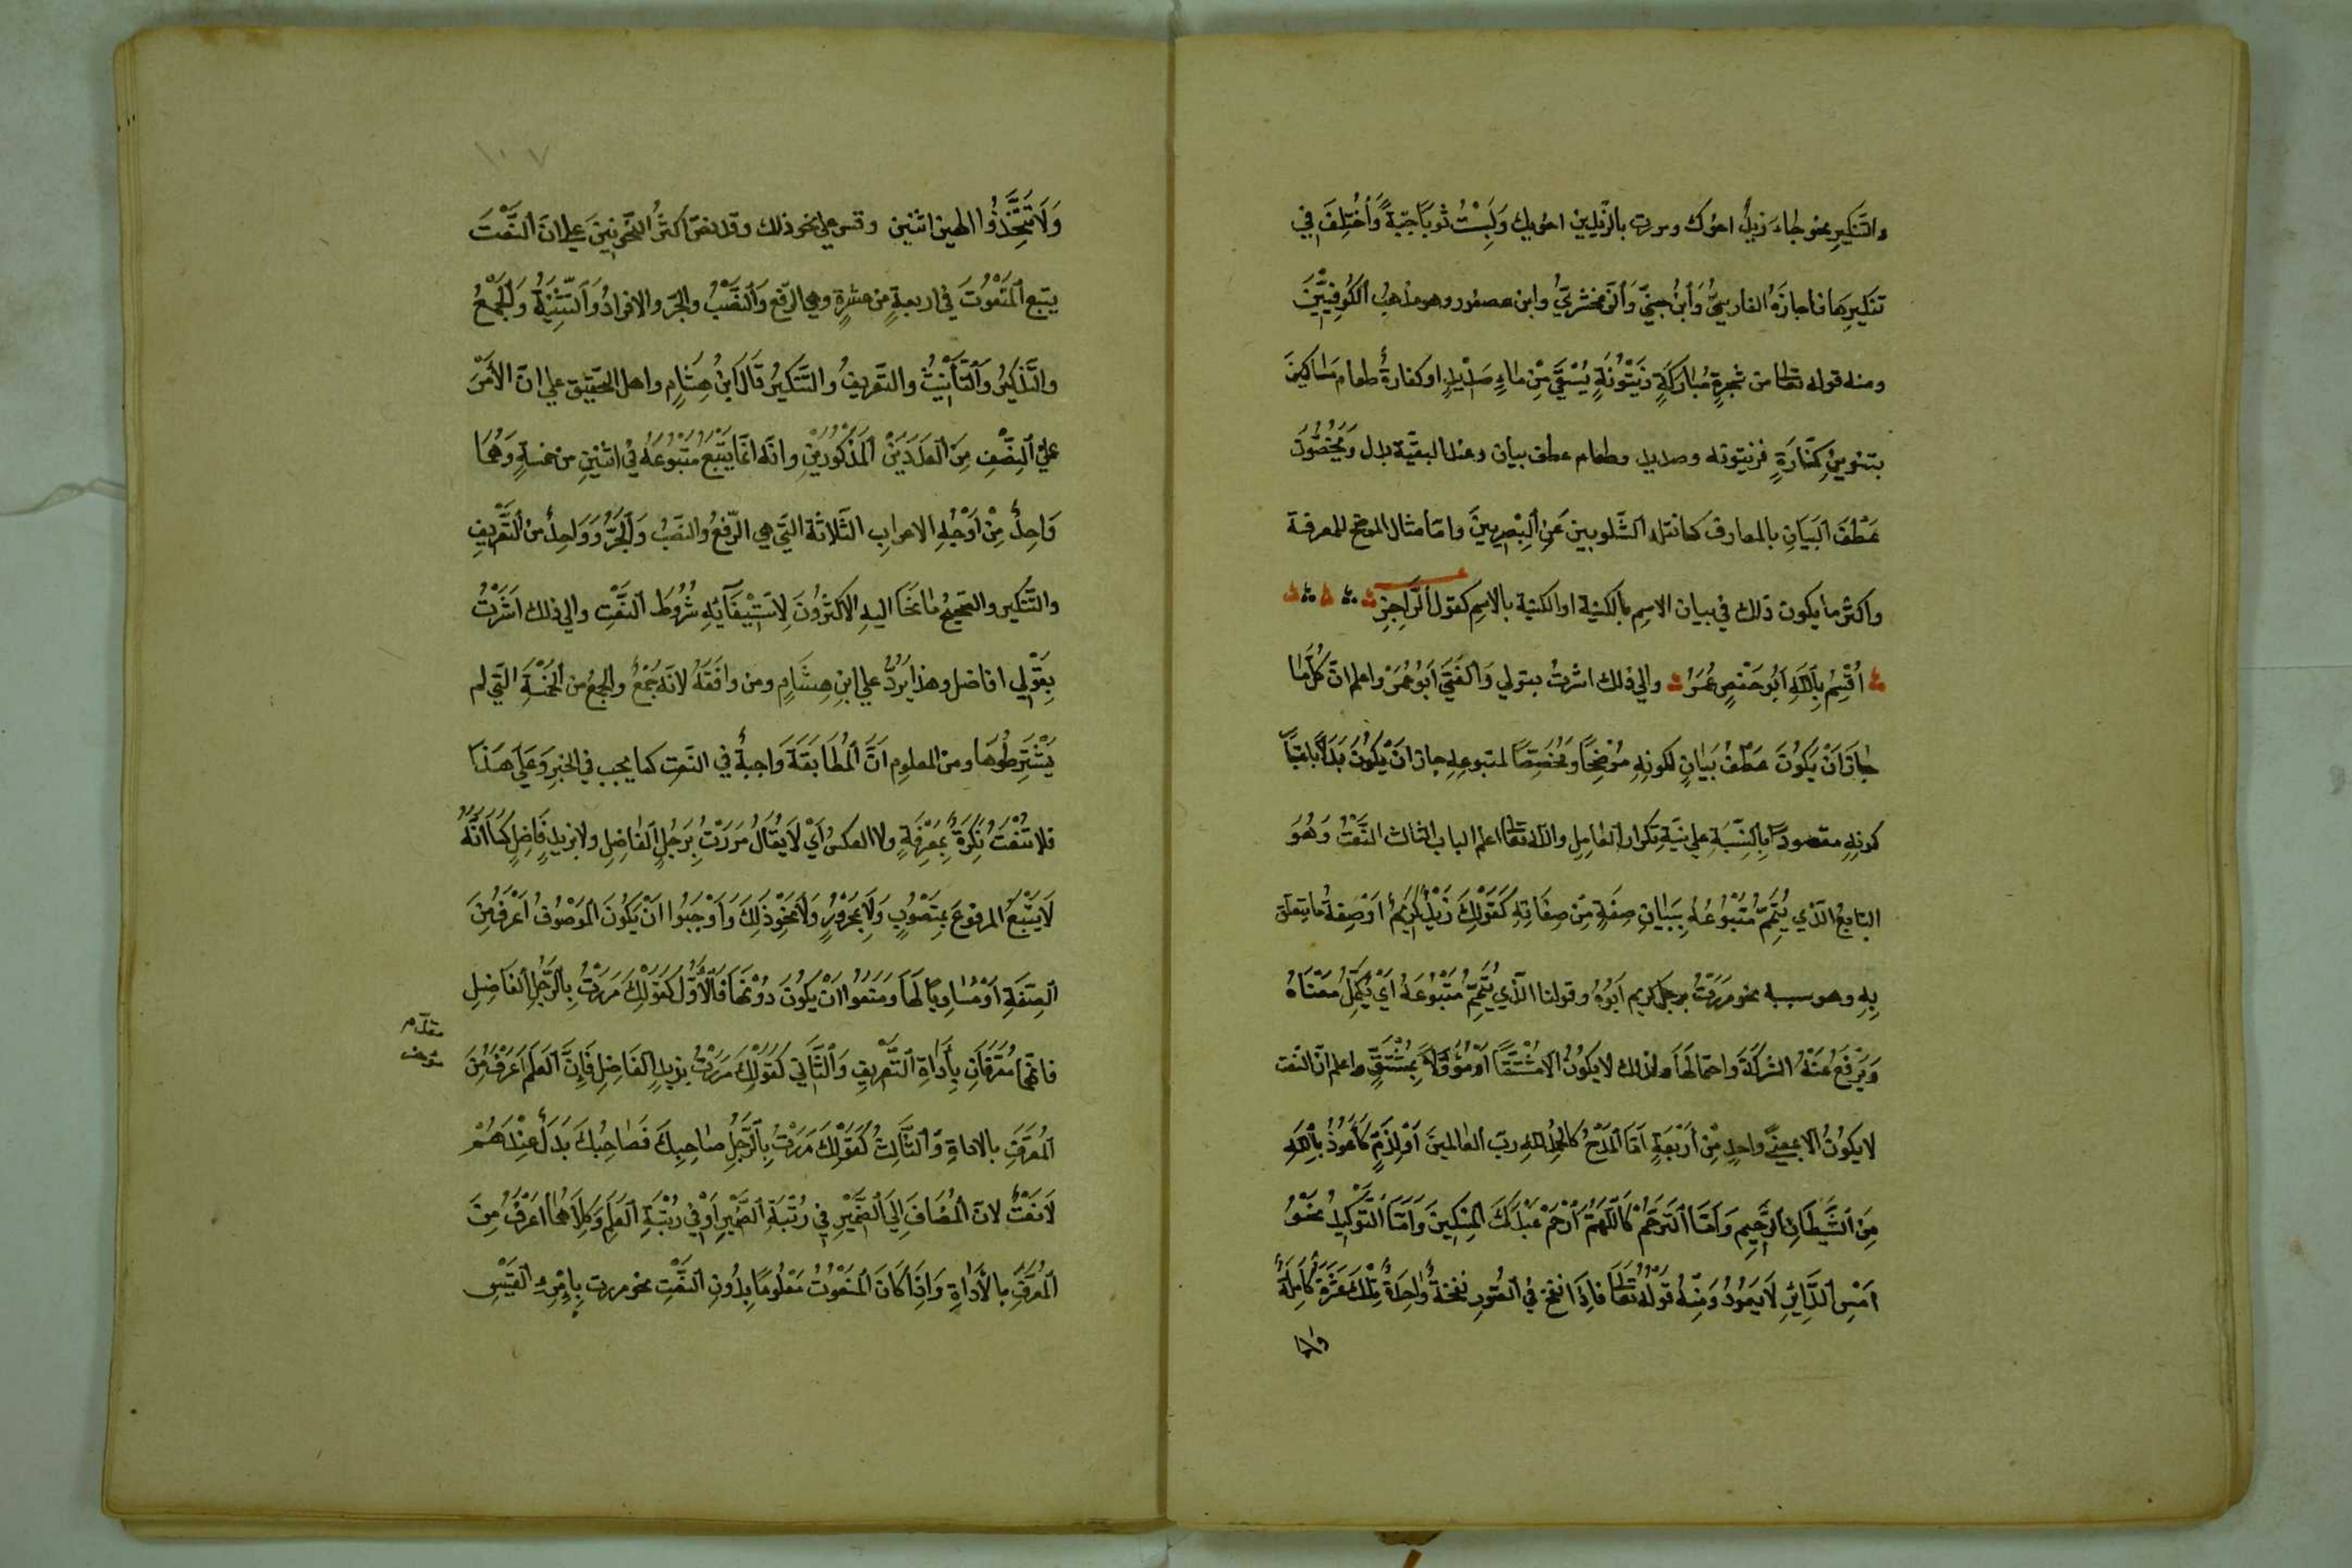 والتنكير نحو جاء زيدٌ اخوك ومررت بالزيدين اخويك ولبستُ ثوبًا جبّةً وأختلف في
تنكيرها فاجازه الفارسيُّ وأبن جنيّ والزمخشريّ وابن عصفور وهو مذهبُ الكوفيّينَ
ومنه قوله تعالى من شجرةٍ مباركةٍ زيتونةٍ يُسقى مِن ماءٍ صديدٍ او كفارةٌ طعام مساكين
بتنوين كفّارةٍ فزيتونه وصديد وطعام عطف بيان وعند البقيّة بدل ويخصّون
عطف البيان بالمعارف كما نقله الشلوبين عن البصريين وامّا مثال الموضح للمعرفة
واكثر ما يكون ذلك في بيان الاسم بالكنية او الكنية بالاسم كقول الرّاجز
أقسم بالله ابو حفصٍ عُمَر والي ذلك اشرتُ بقولي والفتى ابو عُمَرْ واعلم انّ كلّ ما
جاز ان يكون عطفُ بيانٍ لكونه موضحًا ومخصّصًا لمتبوعه جاز ان يكون بدلًا باقيًا
كونه مقصودًا بالنّسبة علي نيّة تكرار العامل والله تعالى اعلم الباب الثالث النّعْتُ وهُوَ
التابعُ الّذي يُتمّ مُتْبوعُهُ ببيان صفةٍ مّن صفاته كقولك زيدٌ الكريمُ اوْ صفة ما يتعلق
بِهِ وهو سببه نحو مررتُ برجل كريم ابُوُهُ وقولنا الّذي يُتمّ مَتْبُوعَهُ ايْ يُكمّلُ معْناهُ
ويرفع عنهُ الشركةَ واحتمالها ولذلك لا يكونُ الا مُشتقًّا اوْ مُؤوّلاً بمشتقٍّ واعلم انّ النّعت
لا يكونُ الّا بمعنى واحدٍ مّن أربعةٍ امّا المدحُ كالحمد للهِ ربّ العالمينَ او الذمِّ كاعُوذُ بالله
مِن الشّيْطان الرّجيم وامّا الترحّمُ كاللهمّ ارْحمْ عبْدك المسكينَ وامّا التّوكيدُ نحو
امْسِ الدّابرِ لا يعودُ ومنهُ قولُهُ تعالى فاذا نفخ في الصّور نفخةٌ واحدةٌ تلك عشرةٌ كاملةٌ
ولا
١٠٧
ولا تتّخذُوا الهين اثنين وقس علي نحو ذلك وقد نصّ أكثرُ النحويينَ علي انّ النّعْتَ
يتبع المنْعُوتَ في اربعةٍ من عشرةٍ وهي الرفع والنّصبُ والجرّ والافرادُ والتّثنيةُ والجمْعُ
والتّذكيرُ والتّأنيثُ والتّعريفُ والتنكيرُ قال ابنُ هشامٍ واهل التحقيق علي انّ الأمْرَ
عليَ النِصْفِ مِن العددَيْن المذْكورَيْنِ وانّه انّما يتْبعُ متْبوعهُ في اثنين من خمسةٍ وهُما
واحدٌ مِن اوْجُهِ الاعراب الثّلاثة الّتي هي الرّفعُ والنّصبُ والجرُّ وواحدٌ من التّعريف
والتّنكير والصّحيحُ ما نحَا اليهِ الاكثرُونَ لِاسْتيفائِهِ شُرُوطَ النّعْتِ والي ذلك اشرْتُ
بقوْلي افاضل وهذا يردُّ علي ابن هشامٍ ومن وافقهُ لانّه جمْعٌ والجمعُ من الخمْسةِ الّتي لم
يشترطُوها ومن المعلوم انّ المُطابقةَ واجبةٌ في النّعت كما يجب في الخبر وعلي هذا
فلا تُنْعَتُ نكرةٌ بمَعْرفةٍ ولا العكسُ ايْ لا يُقالُ مررتُ برجُلٍ الفاضلِ ولا بزيدٍ فاضلٍ كما انّهُ
لا يتْبعُ المرفوعَ بمنصُوبٍ ولا بمجرُورٍ ولا نحو ذلكَ واوْجبُوا انْ يكونَ الموْصُوفُ اعْرفُ منَ
الصِّفةِ اوْ مُساويًا لها ومنعُوا انْ يكونَ دُونها فالأوّل كقولك مررتُ بالرّجُلِ الفاضلِ
فانّهما مُعرّفانِ بأداةِ التّعريفِ والثّاني كقولك مررتُ بزيدٍ الفاضلِ فإنّ العلمَ اعرفُ منَ
المعرّفِ بالاداةِ والثّالثُ كقولكَ مررتُ بالرّجلِ صاحبكَ فصاحبُكَ بدلٌ عنْدهُمْ
لا نعْتٌ لانّ المُضافَ إلي الضّميْرِ في رُتْبةِ الضّميرِ اوْ في رُتْبةِ العَلمِ وكلاهُما اعْرفُ مِنَ
المعرّفِ بالأداةِ واذا كانَ المنعُوتُ معْلُومًا بدُونِ النّعْتِ نحو مررت بامْرِءِ القيْسِ